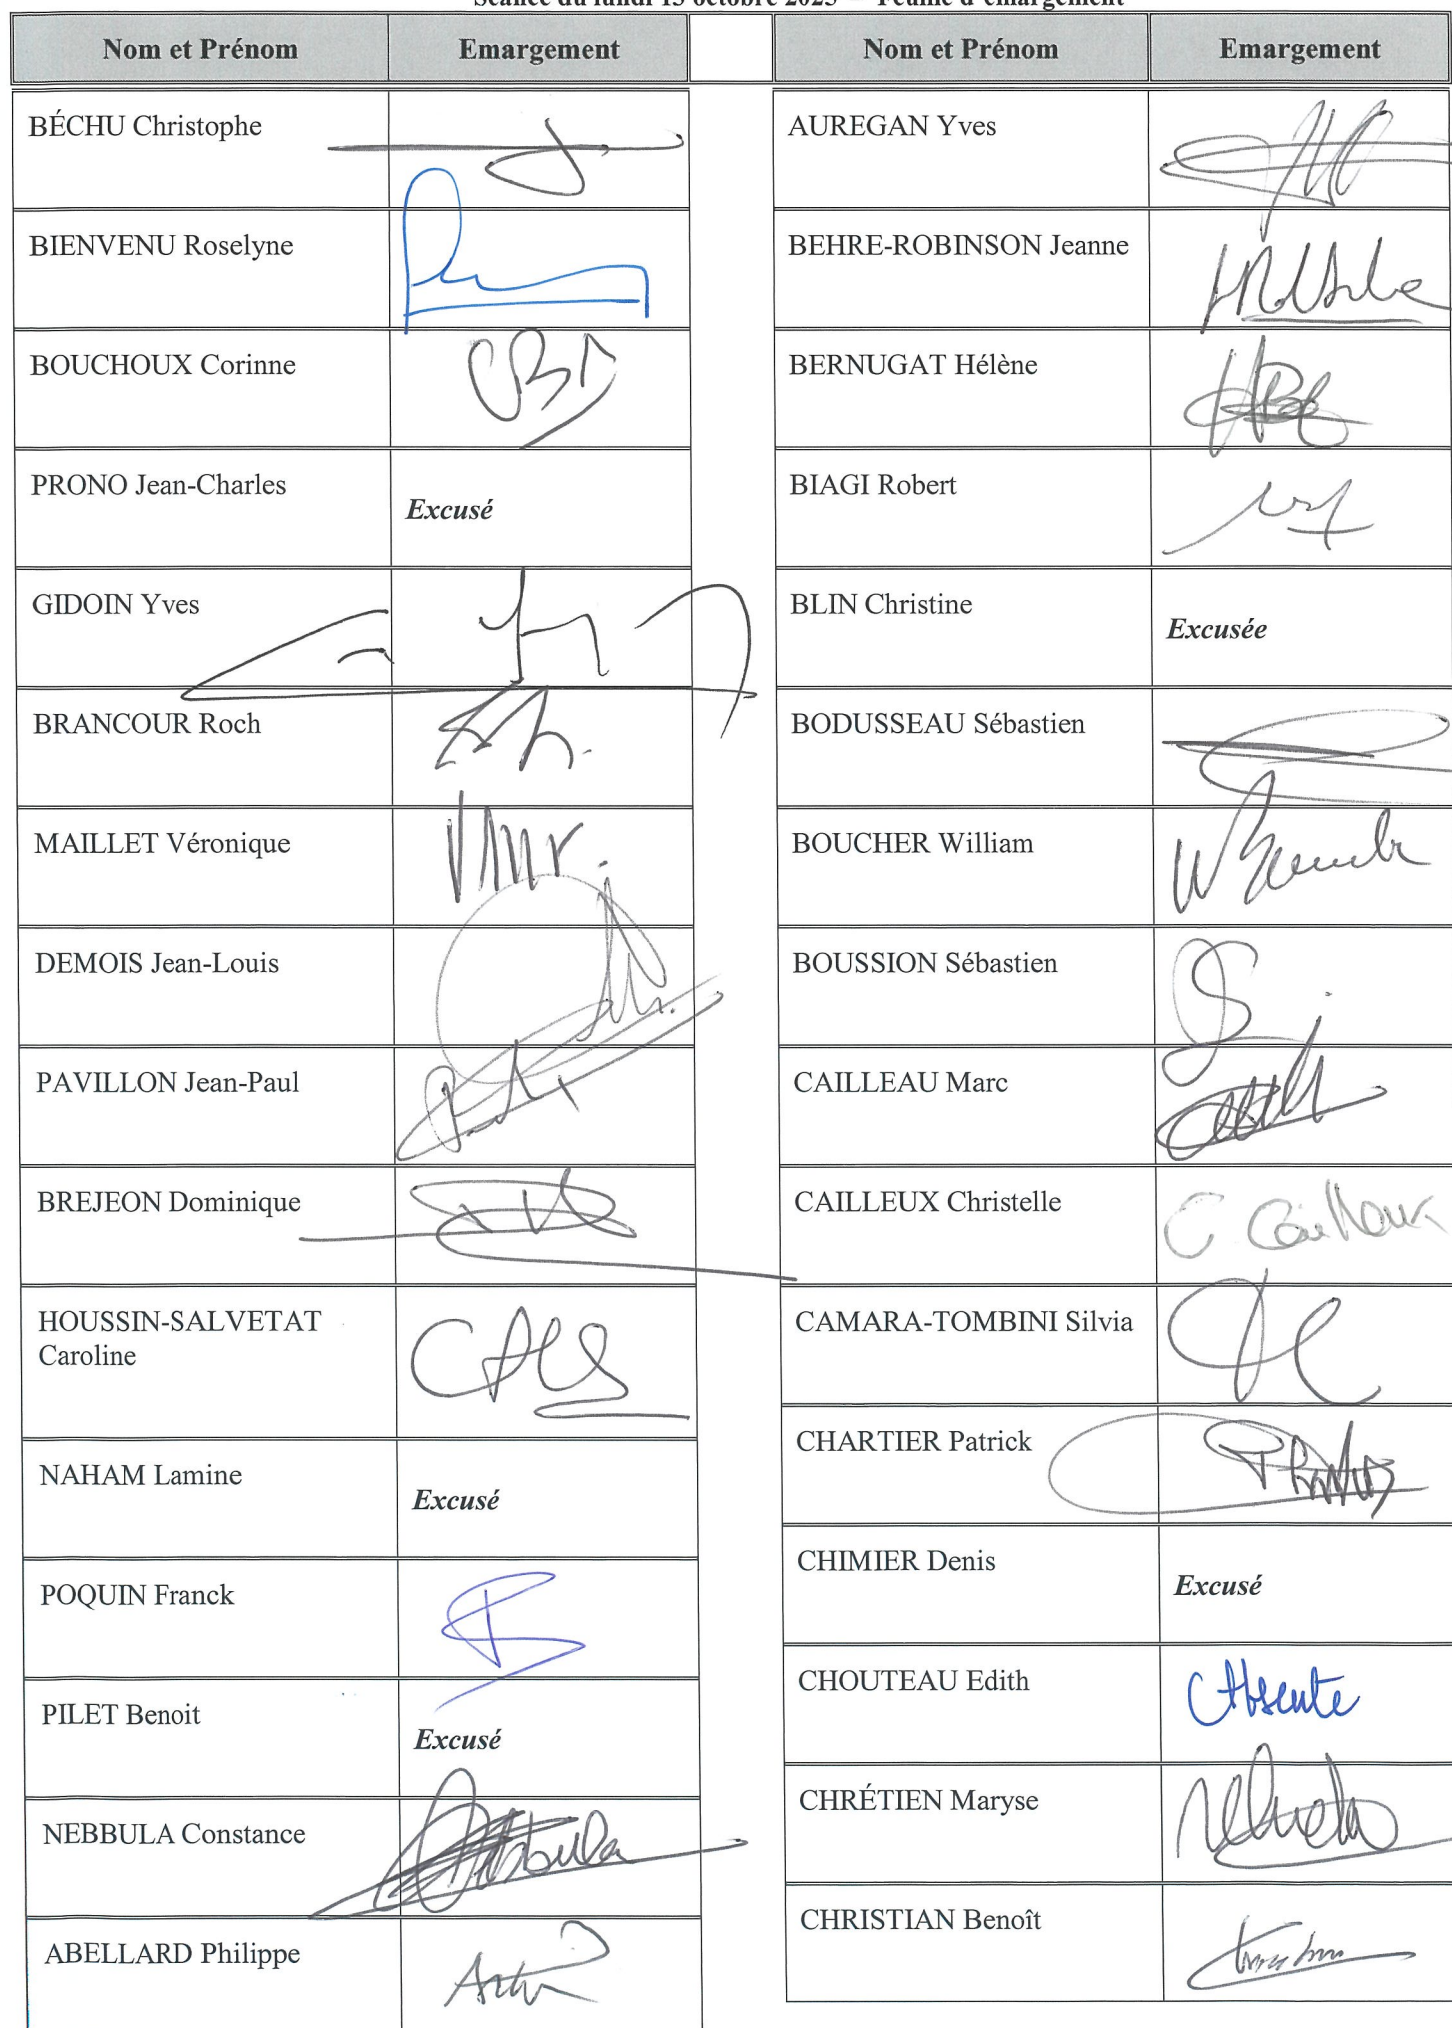 Séance du lundi 13 octobre 2025 — Feuille d'émargement
Nom et Prénom Emargement
BÉCHU Christophe
BIENVENU Roselyne
BOUCHOUX Corinne
PRONO Jean-Charles Excusé
GIDOIN Yves
BRANCOUR Roch
MAILLET Véronique
DEMOIS Jean-Louis
PAVILLON Jean-Paul
BREJEON Dominique
HOUSSIN-SALVETAT
Caroline
NAHAM Lamine Excusé
POQUIN Franck
PILET Benoit Excusé
NEBBULA Constance
ABELLARD Philippe
Nom et Prénom Emargement
AUREGAN Yves
BEHRE-ROBINSON Jeanne
BERNUGAT Hélène
BIAGI Robert
BLIN Christine Excusée
BODUSSEAU Sébastien
BOUCHER William
BOUSSION Sébastien
CAILLEAU Marc
CAILLEUX Christelle C. Cailleux
CAMARA-TOMBINI Silvia
CHARTIER Patrick
CHIMIER Denis Excusé
CHOUTEAU Edith Absente
CHRÉTIEN Maryse
CHRISTIAN Benoît